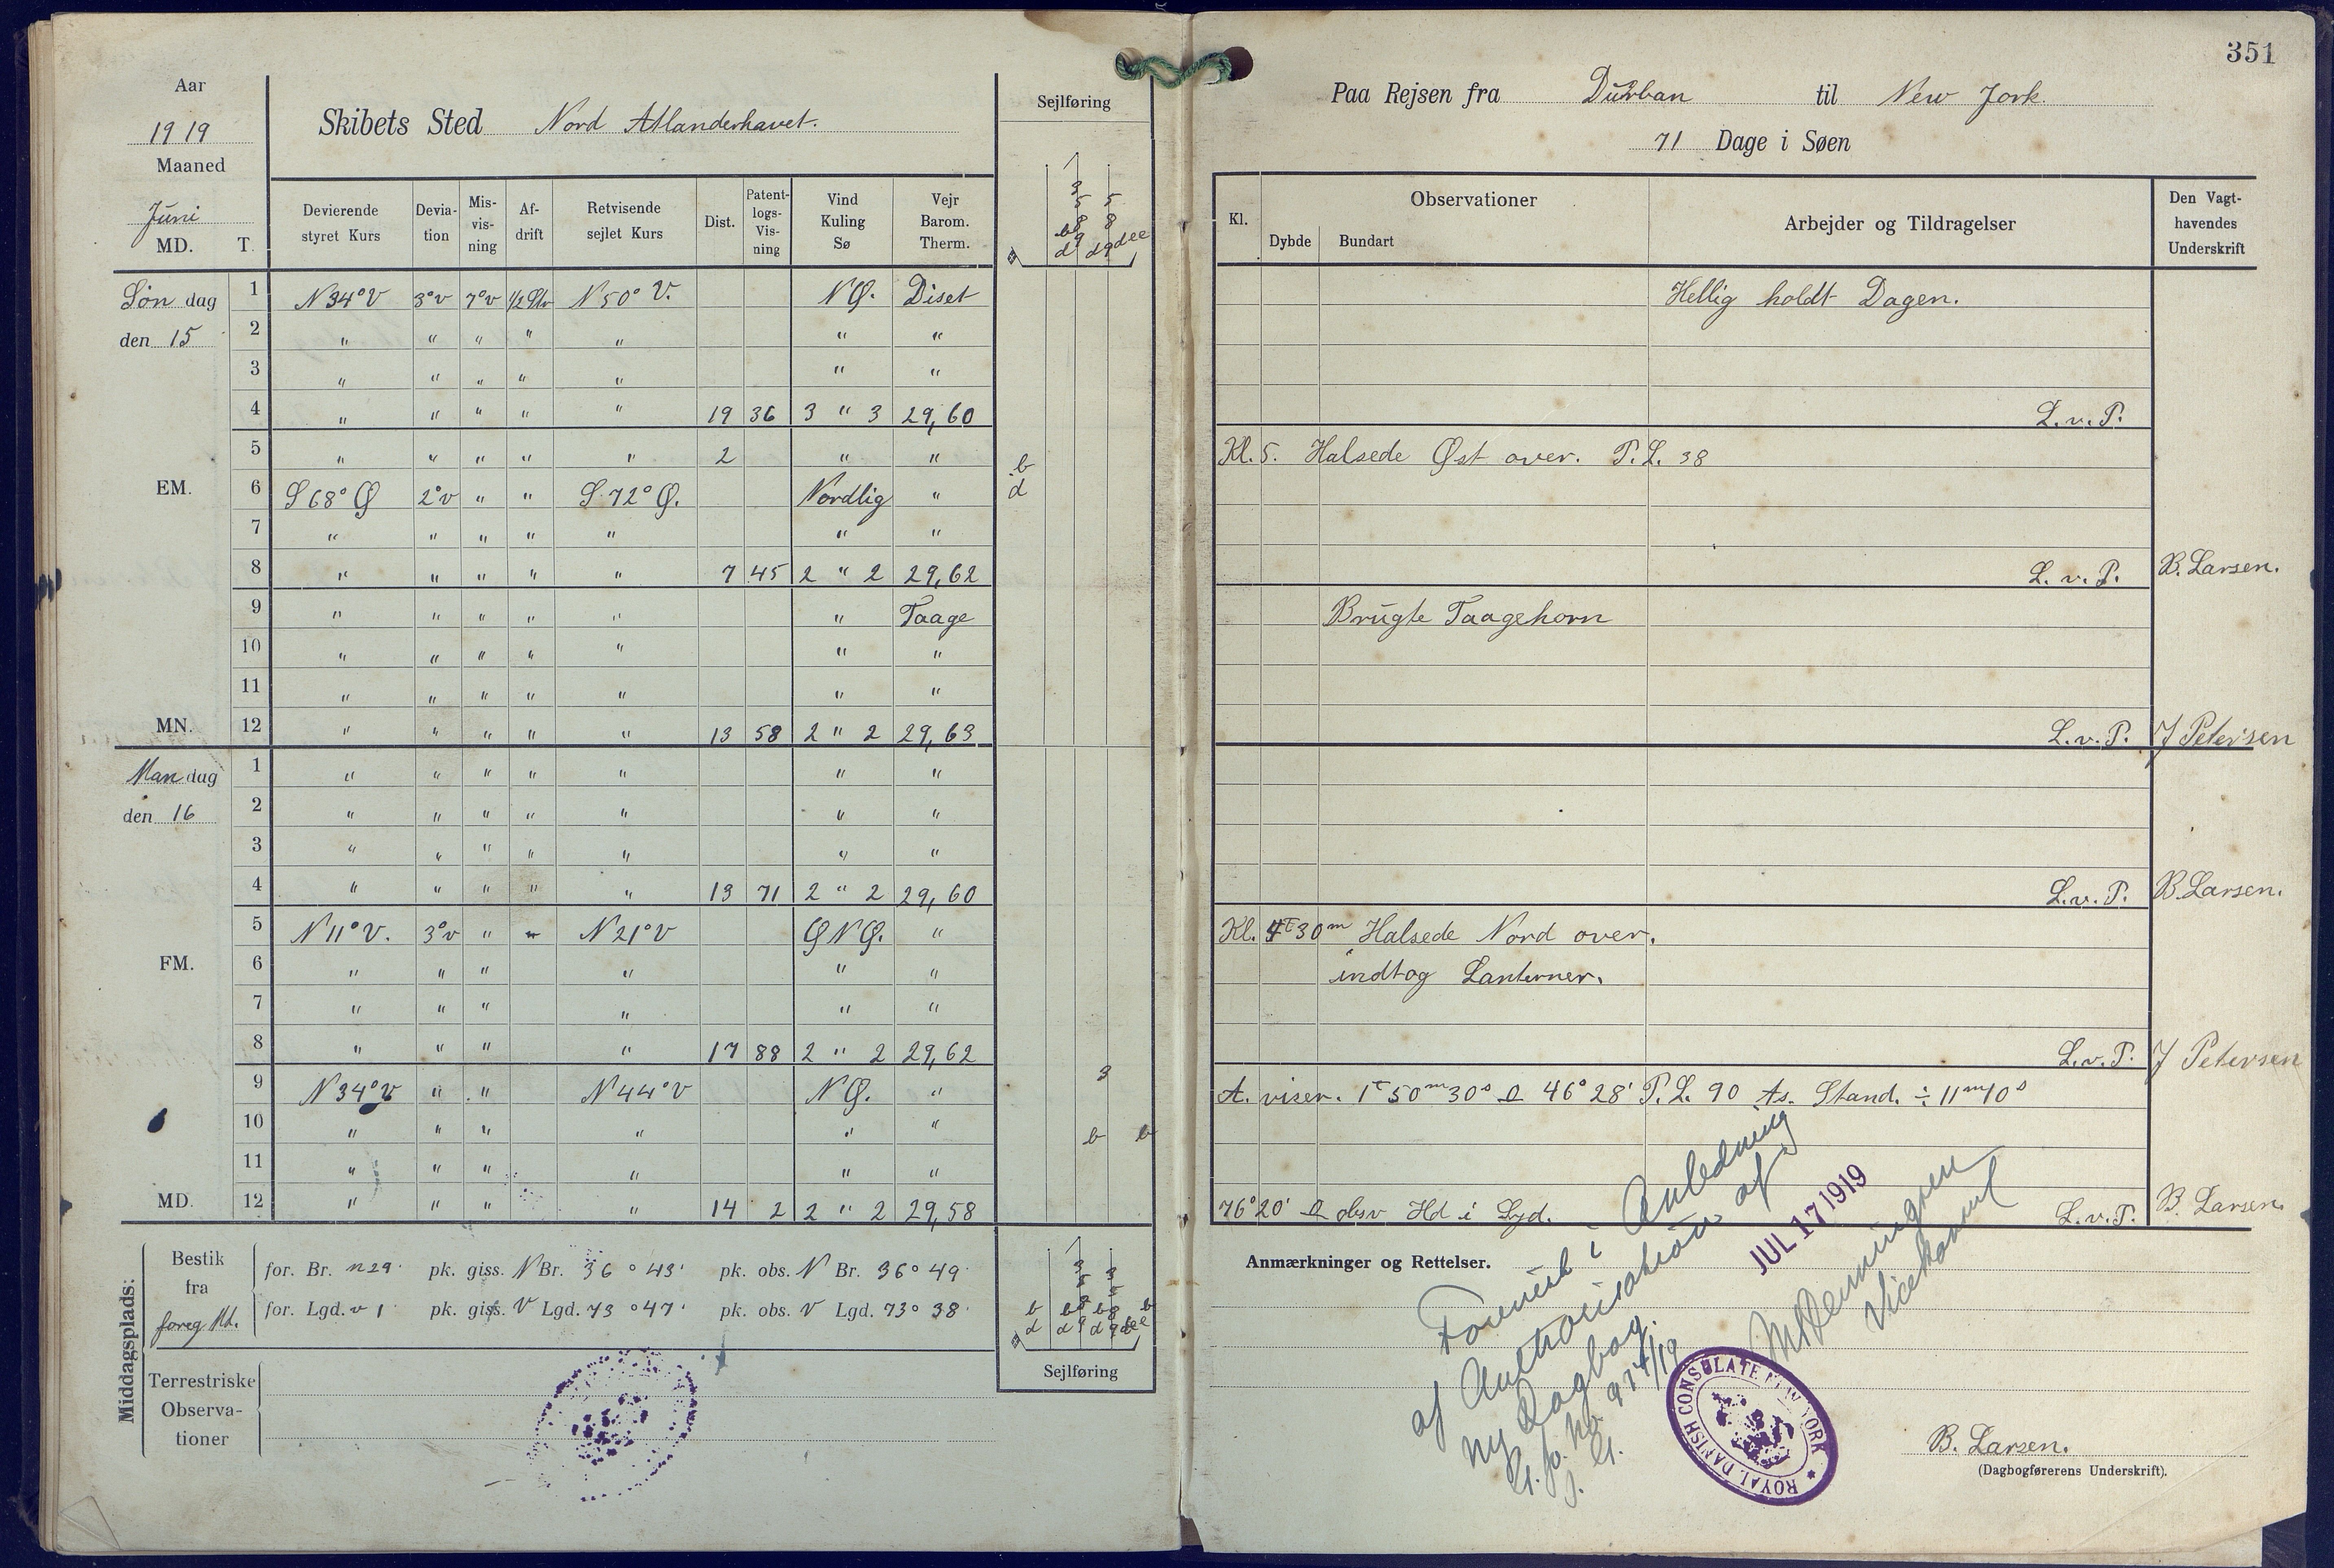 Aar
1919
Maaned
Juni
MD. T.
Skibets Sted Nord Atlanderhavet.
Devierende styret Kurs | Devia-tion | Mis-vis-ning | Af-drift | Retvisende sejlet Kurs | Dist. | Patent-logs-Vis-ning | Vind Kuling Sø | Vejr Barom. Therm.
Sejlføring
Søndag 1 N34°V 3°v 7°v ½ Str N50°V. NØ. Diset
den 15 2 " " " " " " "
3 " " " " " " "
4 " " " " " 19 36 3 " 3 29,60
5 " " " " " 2 " " b
EM. 6 S68°Ø 2°v " " S.72°Ø. Nordlig " d
7 " " " " " " "
8 " " " " " 7 45 2 " 2 29,62
9 " " " " " " Taage
10 " " " " " " "
11 " " " " " " "
MN. 12 " " " " " 13 58 2 " 2 29,63
Mandag 1 " " " " " " "
den 16 2 " " " " " " "
3 " " " " " " "
4 " " " " " 13 71 2 " 2 29,60
5 N11°V. 3°v " N21°V ØNØ. "
FM. 6 " " " " " "
7 " " " " " "
8 " " " " 17 88 2 " 2 29,62
9 N34°V " " N44°V NØ. " 3
10 " " " " " " b b
11 " " " " " "
MD. 12 " " " " 14 2 2 " 2 29,58
Middagsplads:
Bestik fra foreg Md.
for. Br. n29' pk. giss. N Br. 36°43' pk. obs. N Br. 36°49'
for. Lgd. v 1' pk. giss. V Lgd. 73°47' pk. obs. V Lgd. 73°38'
Terrestriske Observa-tioner
Sejlføring
351
Paa Rejsen fra Durban til New Jork.
71 Dage i Søen
Kl. | Observationer | Dybde | Bundart | Arbejder og Tildragelser | Den Vagt-havendes Underskrift
Hellig holdt Dagen.
L.v.P.
Kl. 5. Halsede Øst over. P.L. 38
L.v.P. B. Larsen.
Brugte Taagehorn
L.v.P. J Petersen
L.v.P. B. Larsen.
Kl. 4T30m Halsede Nord over.
indtog Lanterner.
L.v.P. J Petersen
A. viser. 1T50m30s 46°28' P.L. 90 As. Stand. ÷ 11m10s
76°20' obsv Hd i Syd. L.v.P. B. Larsen.
Anmærkninger og Rettelser.
Forevist i Anledning
af Authorisation af
ny Dagbog.
JUL 17 1919
Vicekonsul
ROYAL DANISH CONSULATE NEW YORK
B. Larsen.
(Dagbogførerens Underskrift).